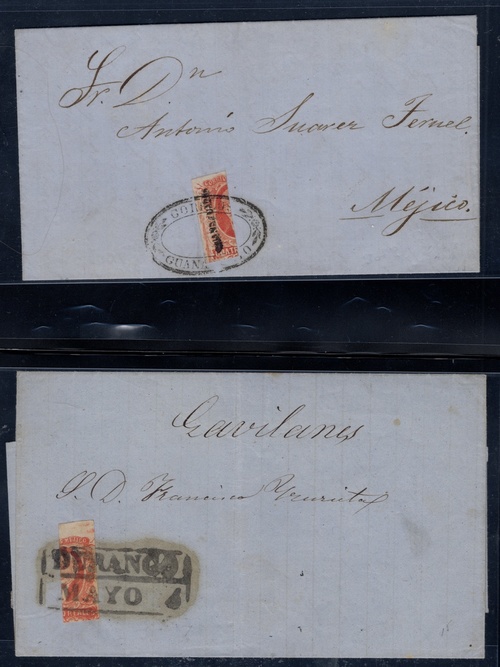 Sr. Dn
Antonio Suarez Teruel.
Méjico.
GUAN
Gavilanes
S. D. Francisco Yrurita
DURANGO
MAYO 6